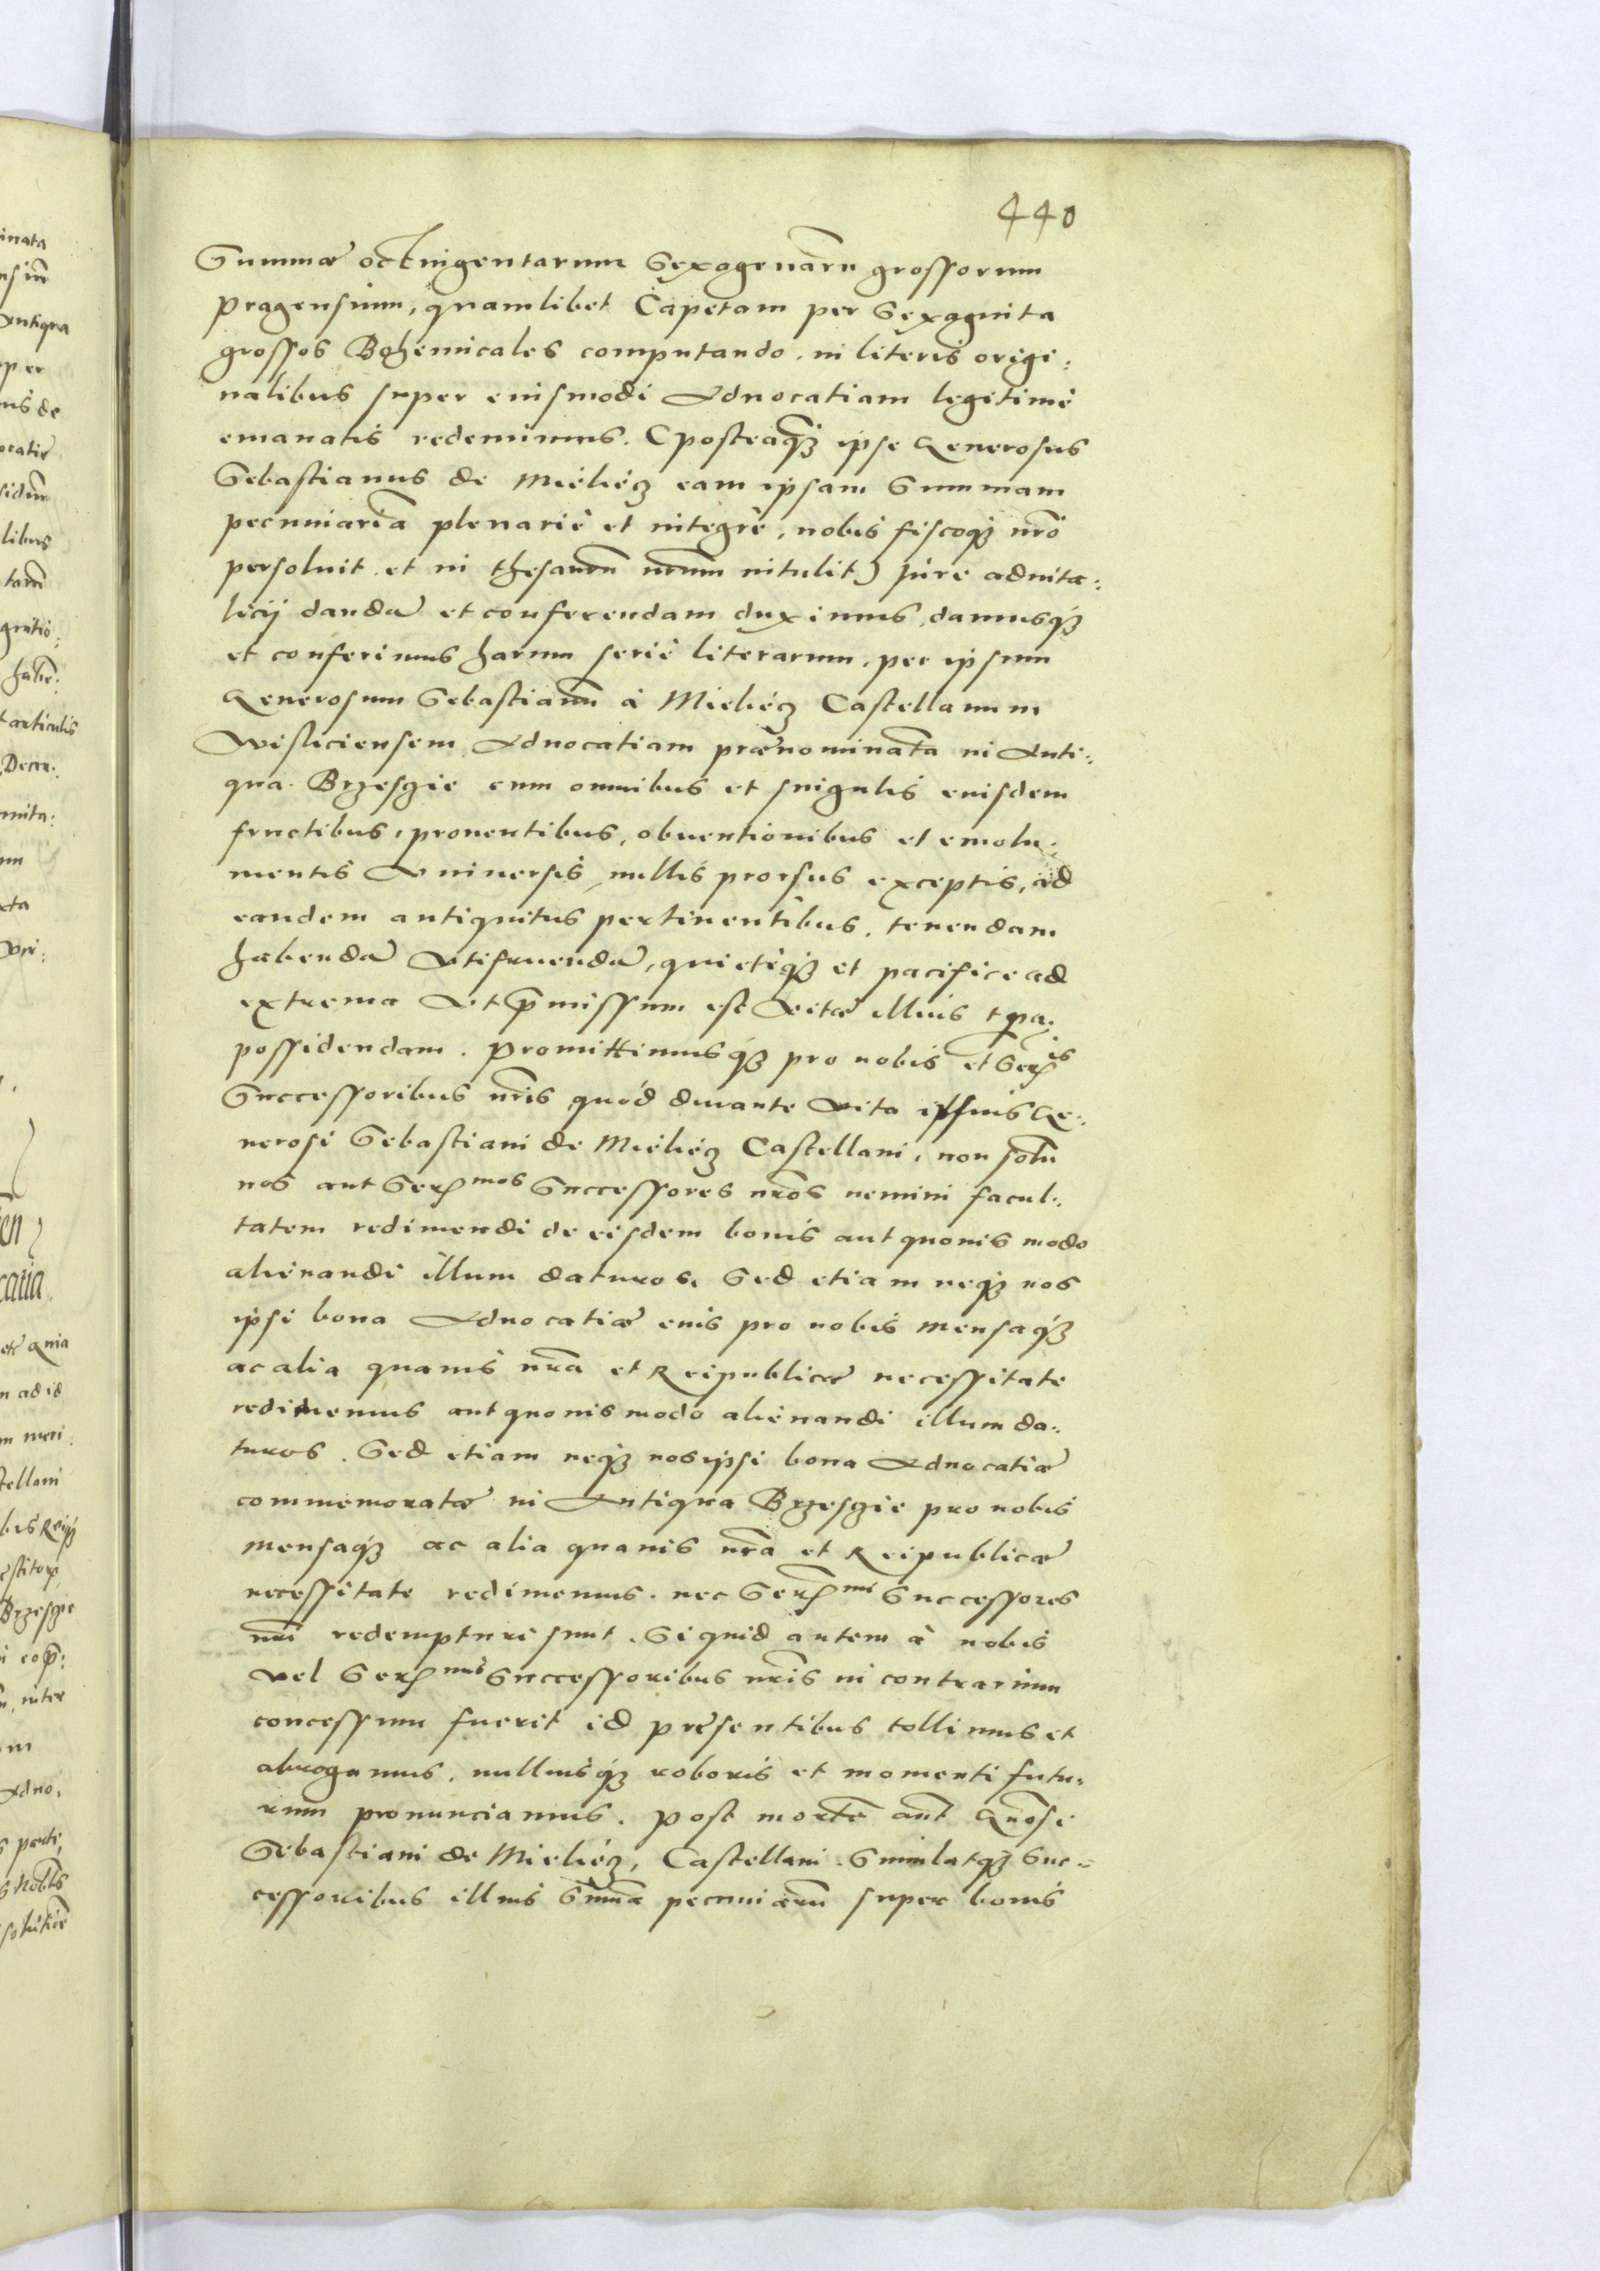 440
Summæ octingentarum Sexagenarũ grossorum
Pragensium, quamlibet Capetam per Sexaginta
grossos Bohemicales computando, in literis origi:
nalibus super eiusmodi Aduocatiam legitimè
emanatis redemimus. (posteaq̃ʒ ipse Generosus
Sebastianus de Mieliécʒ eam ipsam Summam
pecuniariã plenariè et integrè, nobis fiscoqʒ nrõ
persoluit et in thesaurũ nrũm intulit) jure aduita:
licij dandã et conferendam duximus, damusqʒ
et conferimus harum serie literarum, per ipsum
Generosum Sebastianũ à Mieliécʒ Castellanum
Wisliciensem Aduocatiam prænominatã in Anti:
qua Brzesgie cum omnibus et singulis eiusdem
fructibus, prouentibus, obuentionibus et emolu:
mentis Vniuersis, nullis prorsus exceptis, ad
eandem antiquitus pertinentibus, tenendam
habendã Vtifruendã, quietèqʒ et pacifice ad
extrema Vt p̃missum est Vitæ illius tp̃a.
possidendam. Promittimusqʒ pro nobis et Serᵐⁱˢ
Successoribus nrĩs quòd durante Vita ipsius Ge:
nerosi Sebastiani de Mieliécʒ Castellani, non solũ
nos aut Serᵐᵒˢ Successores nrõs nemini facul:
tatem redimendi de eisdem bonis aut quouis modo
alienandi illum daturos, Sed etiam neqʒ nos
ipsi bona Aduocatiæ eius pro nobis mensaqʒ
ac alia quauis nrã et Reipublicæ necessitate
redimemus aut quouis modo alienandi illum da:
turos. Sed etiam neqʒ nos ipsi bona Aduocatiæ
commemoratæ in Antiqua Brzesgie pro nobis
mensaqʒ ac alia quauis nrã et Reipublicæ
necessitate redimemus, nec Serᵐⁱ Successores
nrĩ redempturi sunt. Si quid autem à nobis
Vel Serᵐⁱˢ Successoribus nrĩs in contrarium
concessum fuerit id præsentibus tollimus et
abrogamus, nulliusqʒ roboris et momenti futu:
rum pronunciamus. Post mortẽ aũt Gnõsi
Sebastiani de Mieliécʒ, Castellani Simulatqʒ Suc:
cessoribus illius Sũma pecuniarũ super bonis